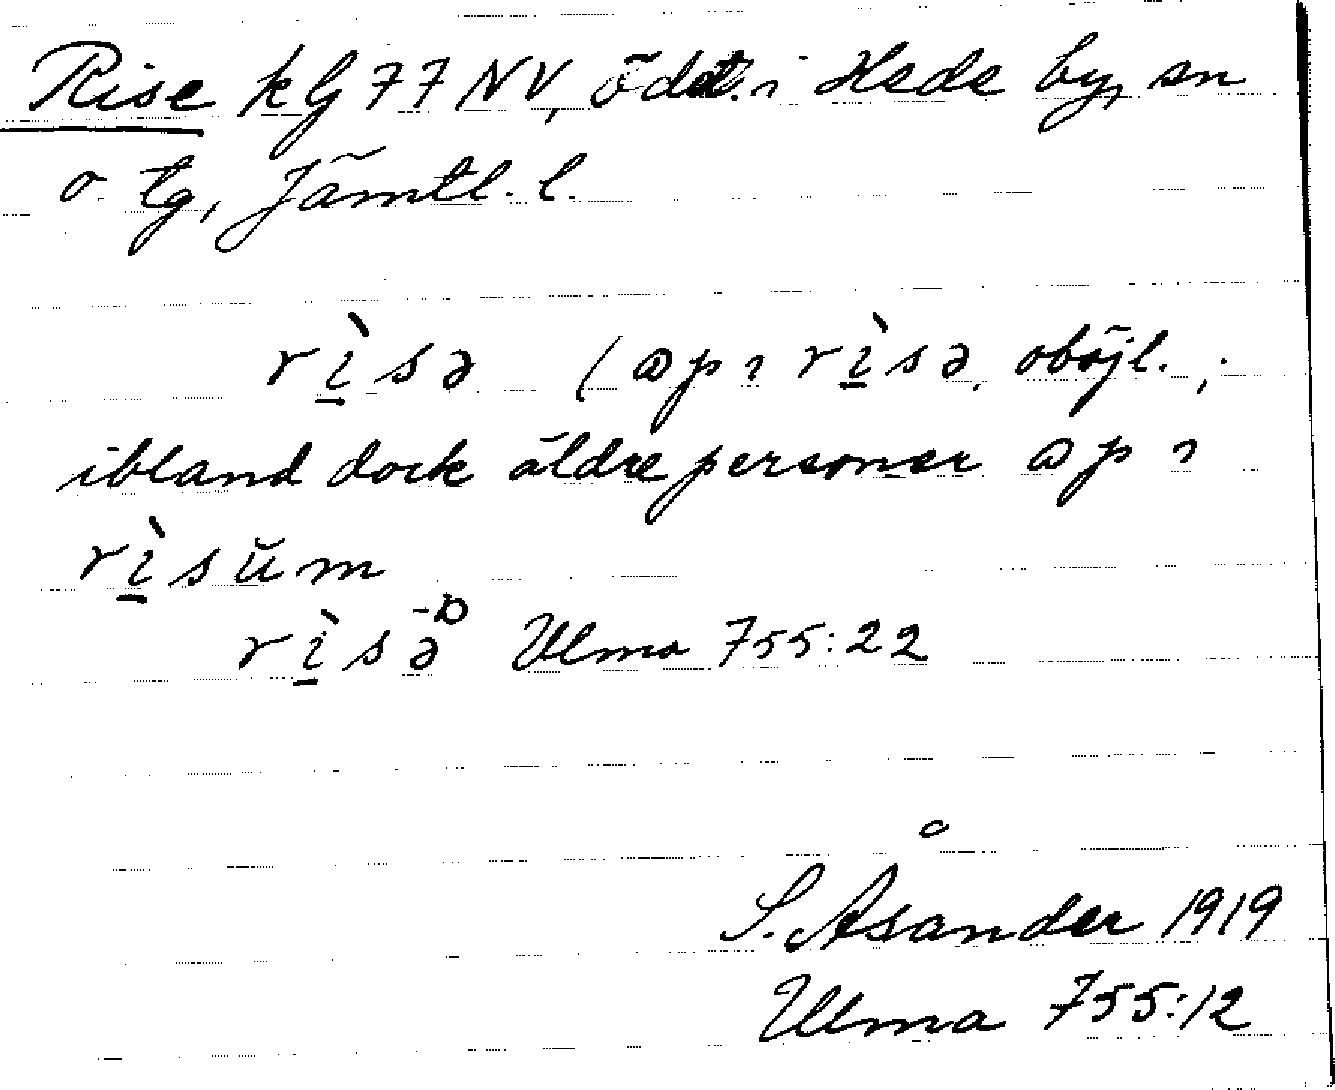 Rise kG 77 NV, ödet. i Hede by, sn
o tg, Jämtl. l.
rì̱sə (ɷp ı rì̱sə, oböjl.,
ibland dock äldre personer ɷp ı
rì̱sŭm
rì̱sə̄ Ulma 755:22
S. Åsander 1919
Ulma 755:12